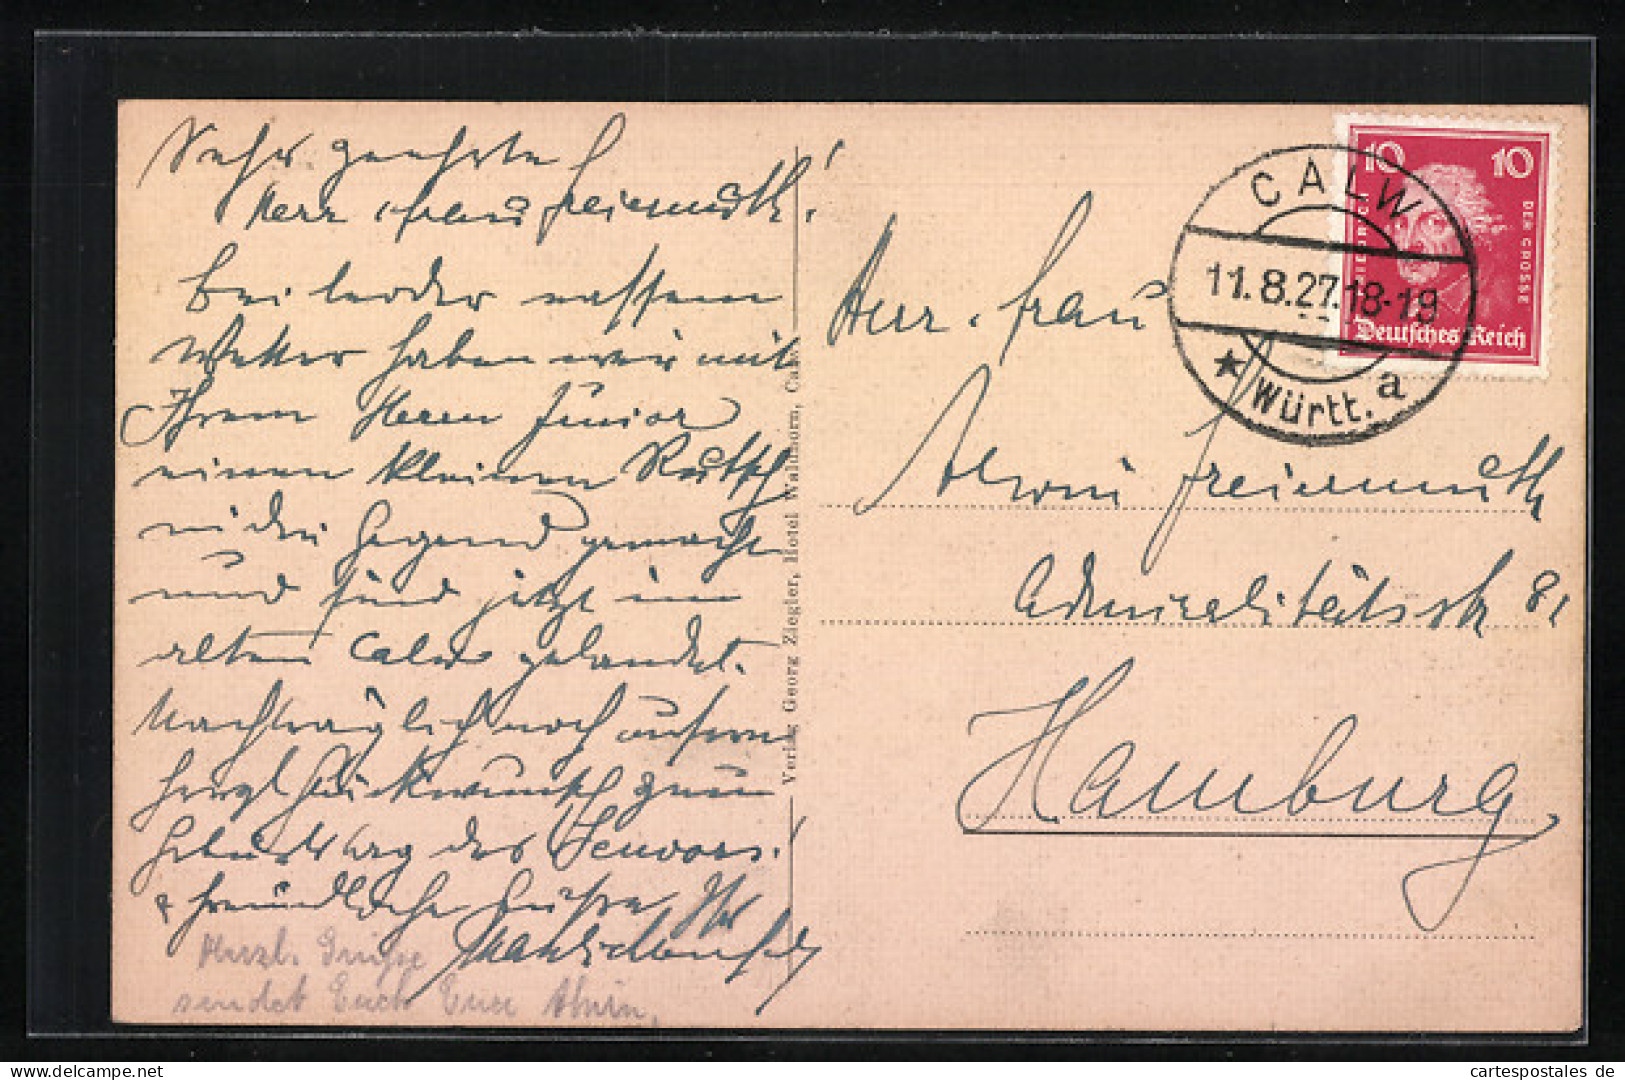 Sehr geehrte
Herr & Frau Freiermuth!
Bei leider nassem
Wetter haben wir mit
Ihrem Herrn Junior
einen kleinen Rutsch
in die Gegend gemacht
und sind jetzt im
alten Calw gelandet.
Nachträglich noch unsern
herzl Glückwunsch zum
Geburtstag des Seniors!
& freundliche Grüsse Ihr
Herzl. Grüsse
sendet Euch Euer Alwin.
Verlag Georg Ziegler, Hotel Waldhorn, Calw
CALW
11.8.27.18-19
★ Württ. a
10 10
FRIEDRICH DER GROSSE
Deutsches Reich
Herr & Frau
Alwin Freiermuth
Admiralitätsstr 81
Hamburg
cartespostales de